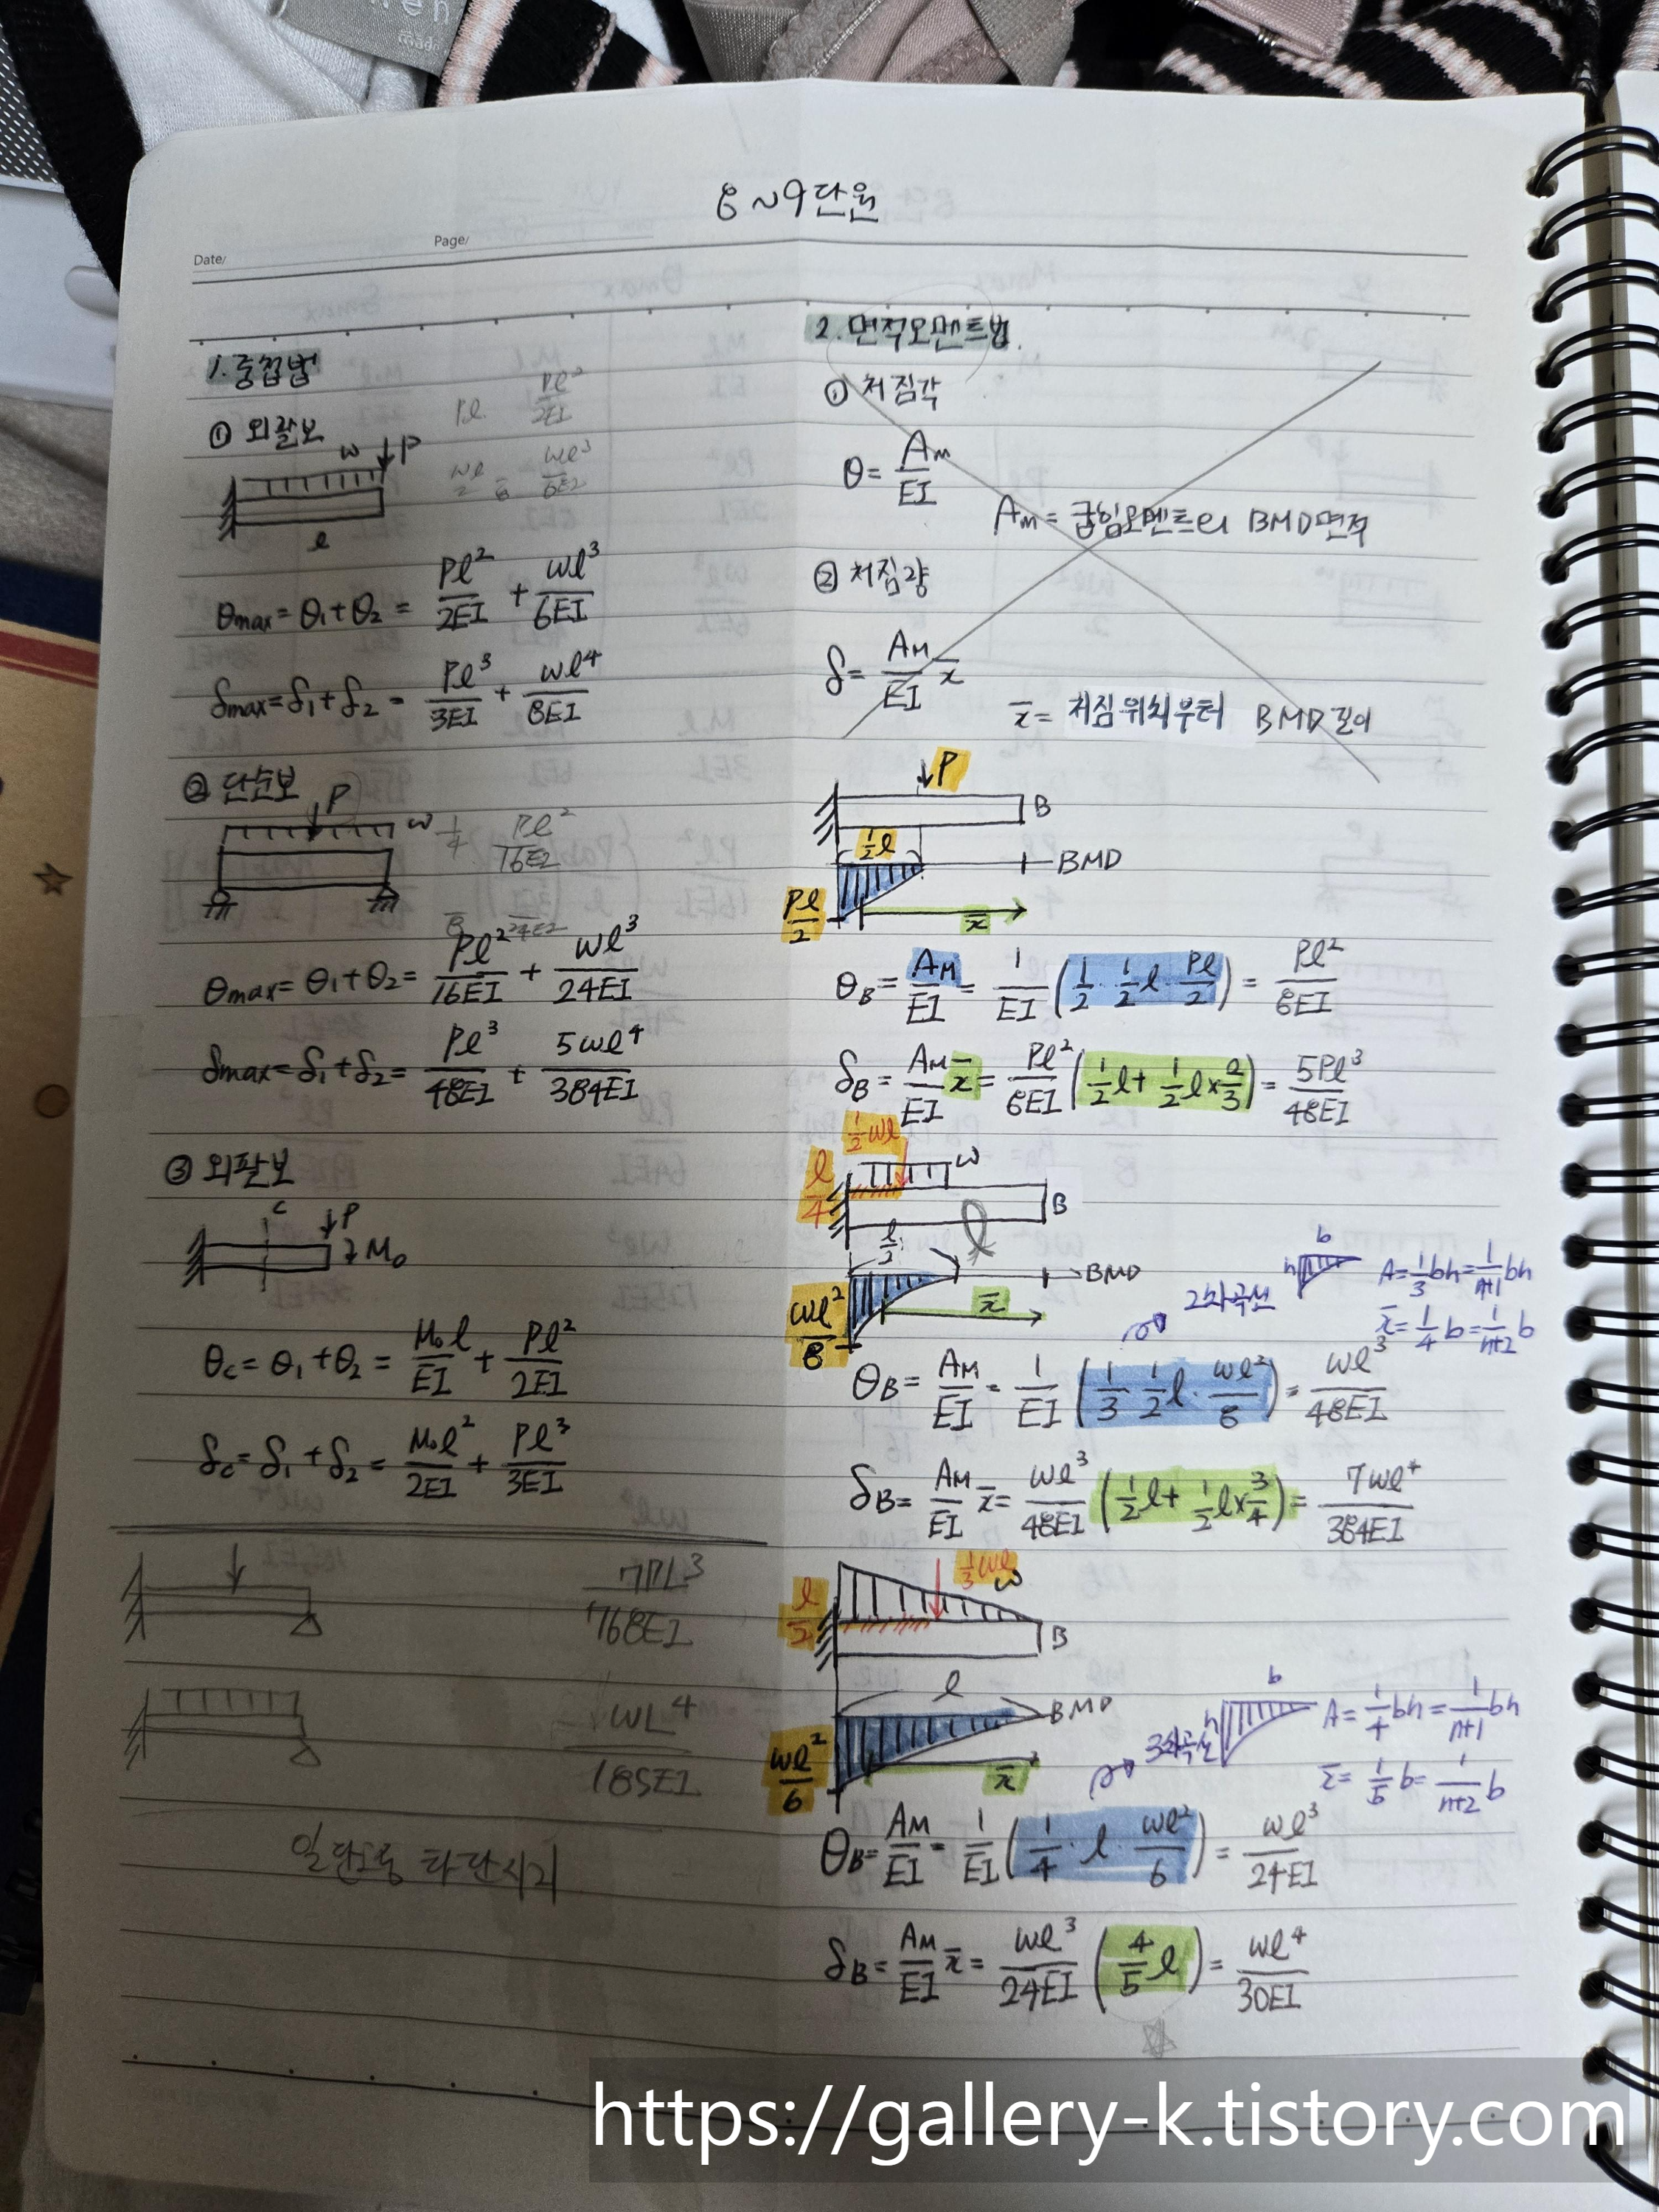 8~9단원
Date/
Page/
1. 중첩법
① 외팔보
Pl Pl²/2EI
wl³/6EI
w P
l
θmax = θ₁+θ₂ = Pl²/2EI + wl³/6EI
δmax = δ₁+δ₂ = Pl³/3EI + wl⁴/8EI
② 단순보
P
w 1/4 Pl²/16EI
24EI
θmax = θ₁+θ₂ = Pl²/16EI + wl³/24EI
δmax = δ₁+δ₂ = Pl³/48EI + 5wl⁴/384EI
③ 외팔보
C P
M₀
θc = θ₁+θ₂ = M₀l/EI + Pl²/2EI
δc = δ₁+δ₂ = M₀l²/2EI + Pl³/3EI
7PL³/768EI
WL⁴/185EI
일단고정 타단지지
2. 면적모멘트법.
① 처짐각
θ = Am/EI
Am = 굽힘모멘트의 BMD면적
② 처짐량
δ = AM/EI x̄
x̄ = 처짐위치부터 BMD 길이
P
B
1/2 l
BMD
Pl/2
x̄
θB = AM/EI = 1/EI (1/2 · 1/2 l · Pl/2) = Pl²/8EI
δB = AM/EI x̄ = Pl²/8EI (1/2 l + 1/2 l × 2/3) = 5Pl³/48EI
1/2 wl
l/4
w
B
l/2
l
BMD
wl²/8
x̄
2차곡선
b
h
A = 1/3 bh = 1/n+1 bh
x̄ = 1/4 b = 1/n+2 b
θB = AM/EI = 1/EI (1/3 · 1/2 l · wl²/8) = wl³/48EI
δB = AM/EI x̄ = wl³/48EI (1/2 l + 1/2 l × 3/4) = 7wl⁴/384EI
1/3 wl
w
l/2
B
l
BMD
wl²/6
x̄
3차곡선
b
h
A = 1/4 bh = 1/n+1 bh
x̄ = 1/5 b = 1/n+2 b
θB = AM/EI = 1/EI (1/4 · l · wl²/6) = wl³/24EI
δB = AM/EI x̄ = wl³/24EI (4/5 l) = wl⁴/30EI
https://gallery-k.tistory.com